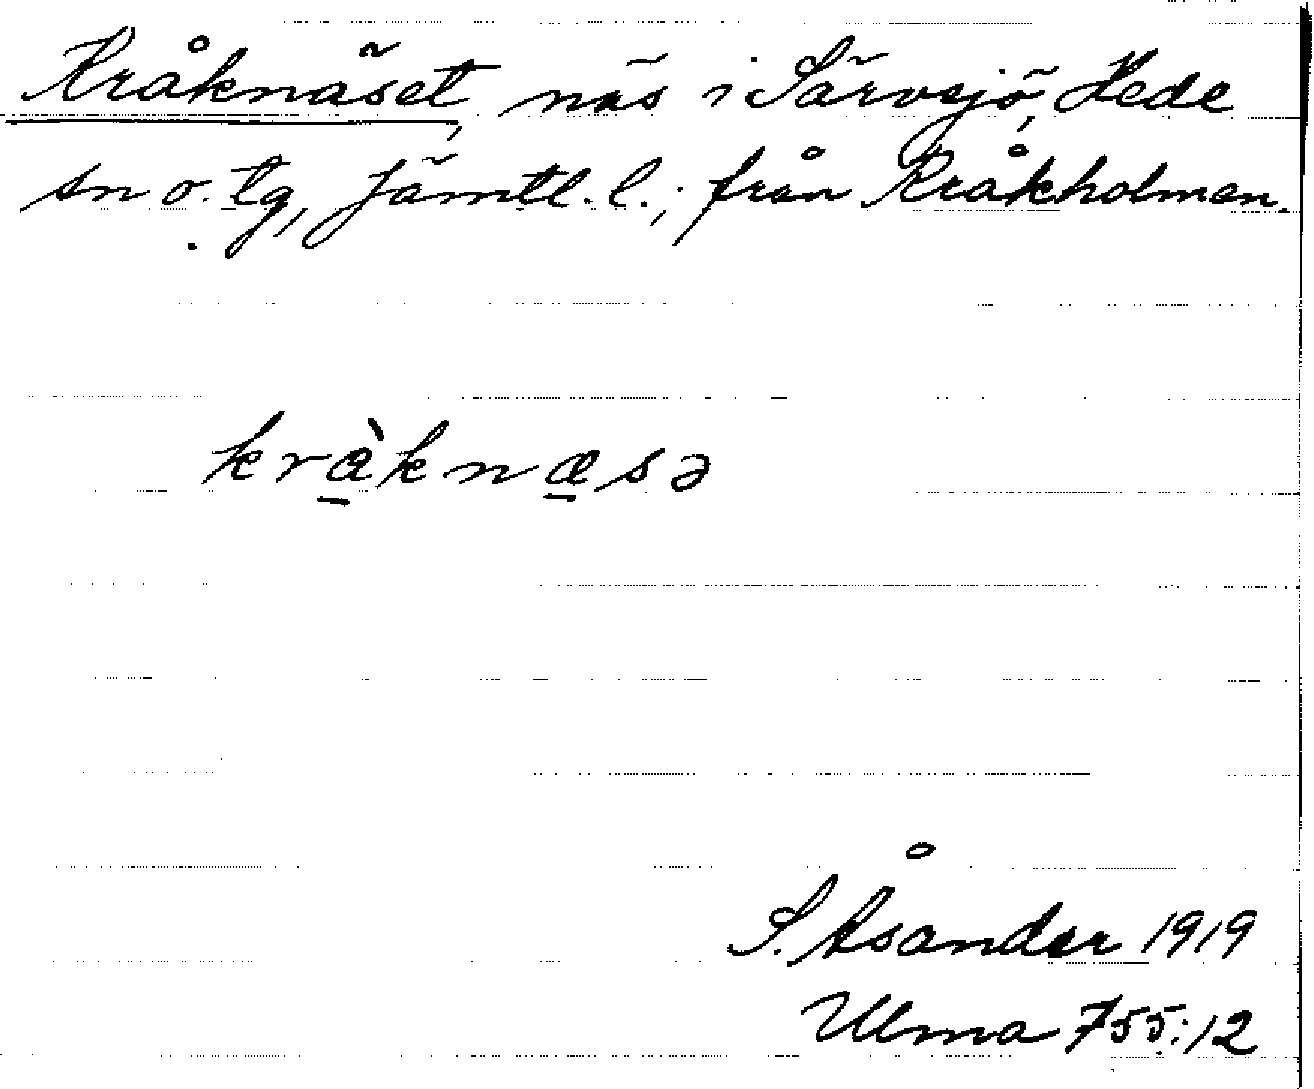 Kråknäset, näs i Särvsjö, Hede
sn o. tg, Jämtl. l.; från Kråkholmen.
kràknæsə
S. Åsander 1919
Ulma 755:12